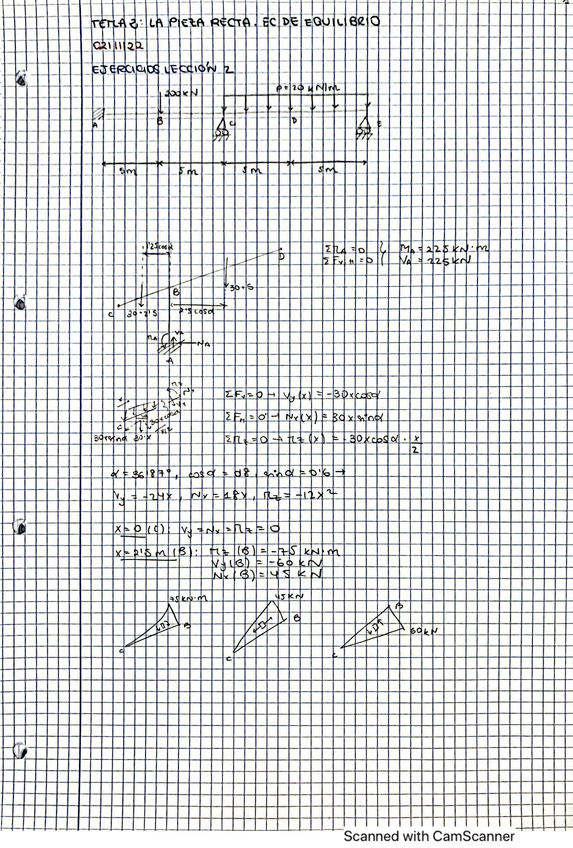 TEMA 3: LA PIEZA RECTA. EC DE EQUILIBRIO
02/11/22
EJERCICIOS LECCIÓN 2
200kN
P=20 kN/m
A B C D E
5m 5m 5m 5m
1'25cosα
D
ΣMA=0 MA=225kN·m
ΣFv,H=0 VA=225kN
B
30·5
C 30·2'5 2'5cosα
MA VA
NA
A
ΣFv=0→ Vy(x)=-30xcosα
ΣFH=0→ Nx(x)=30xsinα
30xcosα
C
30xsinα 30·x
ΣMz=0→ Mz(x)=-30xcosα·x/2
α=36'87°, cosα=0'8, sinα=0'6→
Vy=-24x, Nx=18x, Mz=-12x²
x=0 (C): Vy=Nx=Mz=0
x=2'5m (B): Mz(B)=-75 kN·m
Vy(B)=-60kN
Nx(B)=45kN
75kN·m 45kN B
B B 60kN
C C C
Scanned with CamScanner